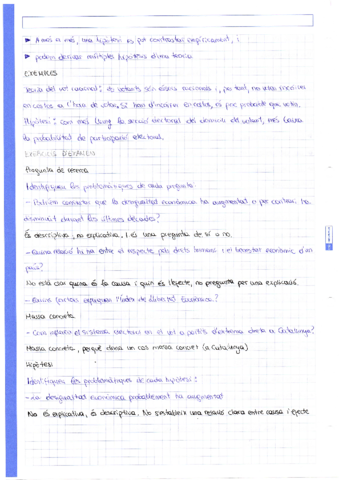 ▶ A més a més, una hipòtesi es pot contrastar empíricament, i
▶ poden derivar múltiples hipòtesis d'una teoria
EXEMPLES
Teoria del vot racional: els votants són éssers racionals i, per tant, no volen incórrer
en costos a l'hora de votar. Si han d'incórrer en costos, és poc probable que votin.
Hipòtesi: com més lluny la secció electoral del domicili del votant, més baixa
la probabilitat de participació electoral.
Pregunta de recerca
Identifiqueu les problemàtiques de cada pregunta
- la desigualtat econòmica ha augmentat o per contra, ha
disminuït durant les últimes dècades?
És descriptiva, no explicativa. I és una pregunta de sí o no.
- Quina relació hi ha entre el respecte pels drets humans i el benestar econòmic d'un
país?
No està clar quina és la causa i quin és l'efecte, no pregunta per una explicació.
- Quins factors expliquen l'índex de
Massa concreta
- Com el sistema electoral en el vot a partits d'extrema dreta a Catalunya?
Massa concreta, perquè dona un cas massa concret (a Catalunya)
Hipòtesi
Identifiqueu les problemàtiques de cada hipòtesi:
- La desigualtat econòmica probablement ha augmentat
No és explicativa, és descriptiva. No s'estableix una relació clara entre causa i efecte